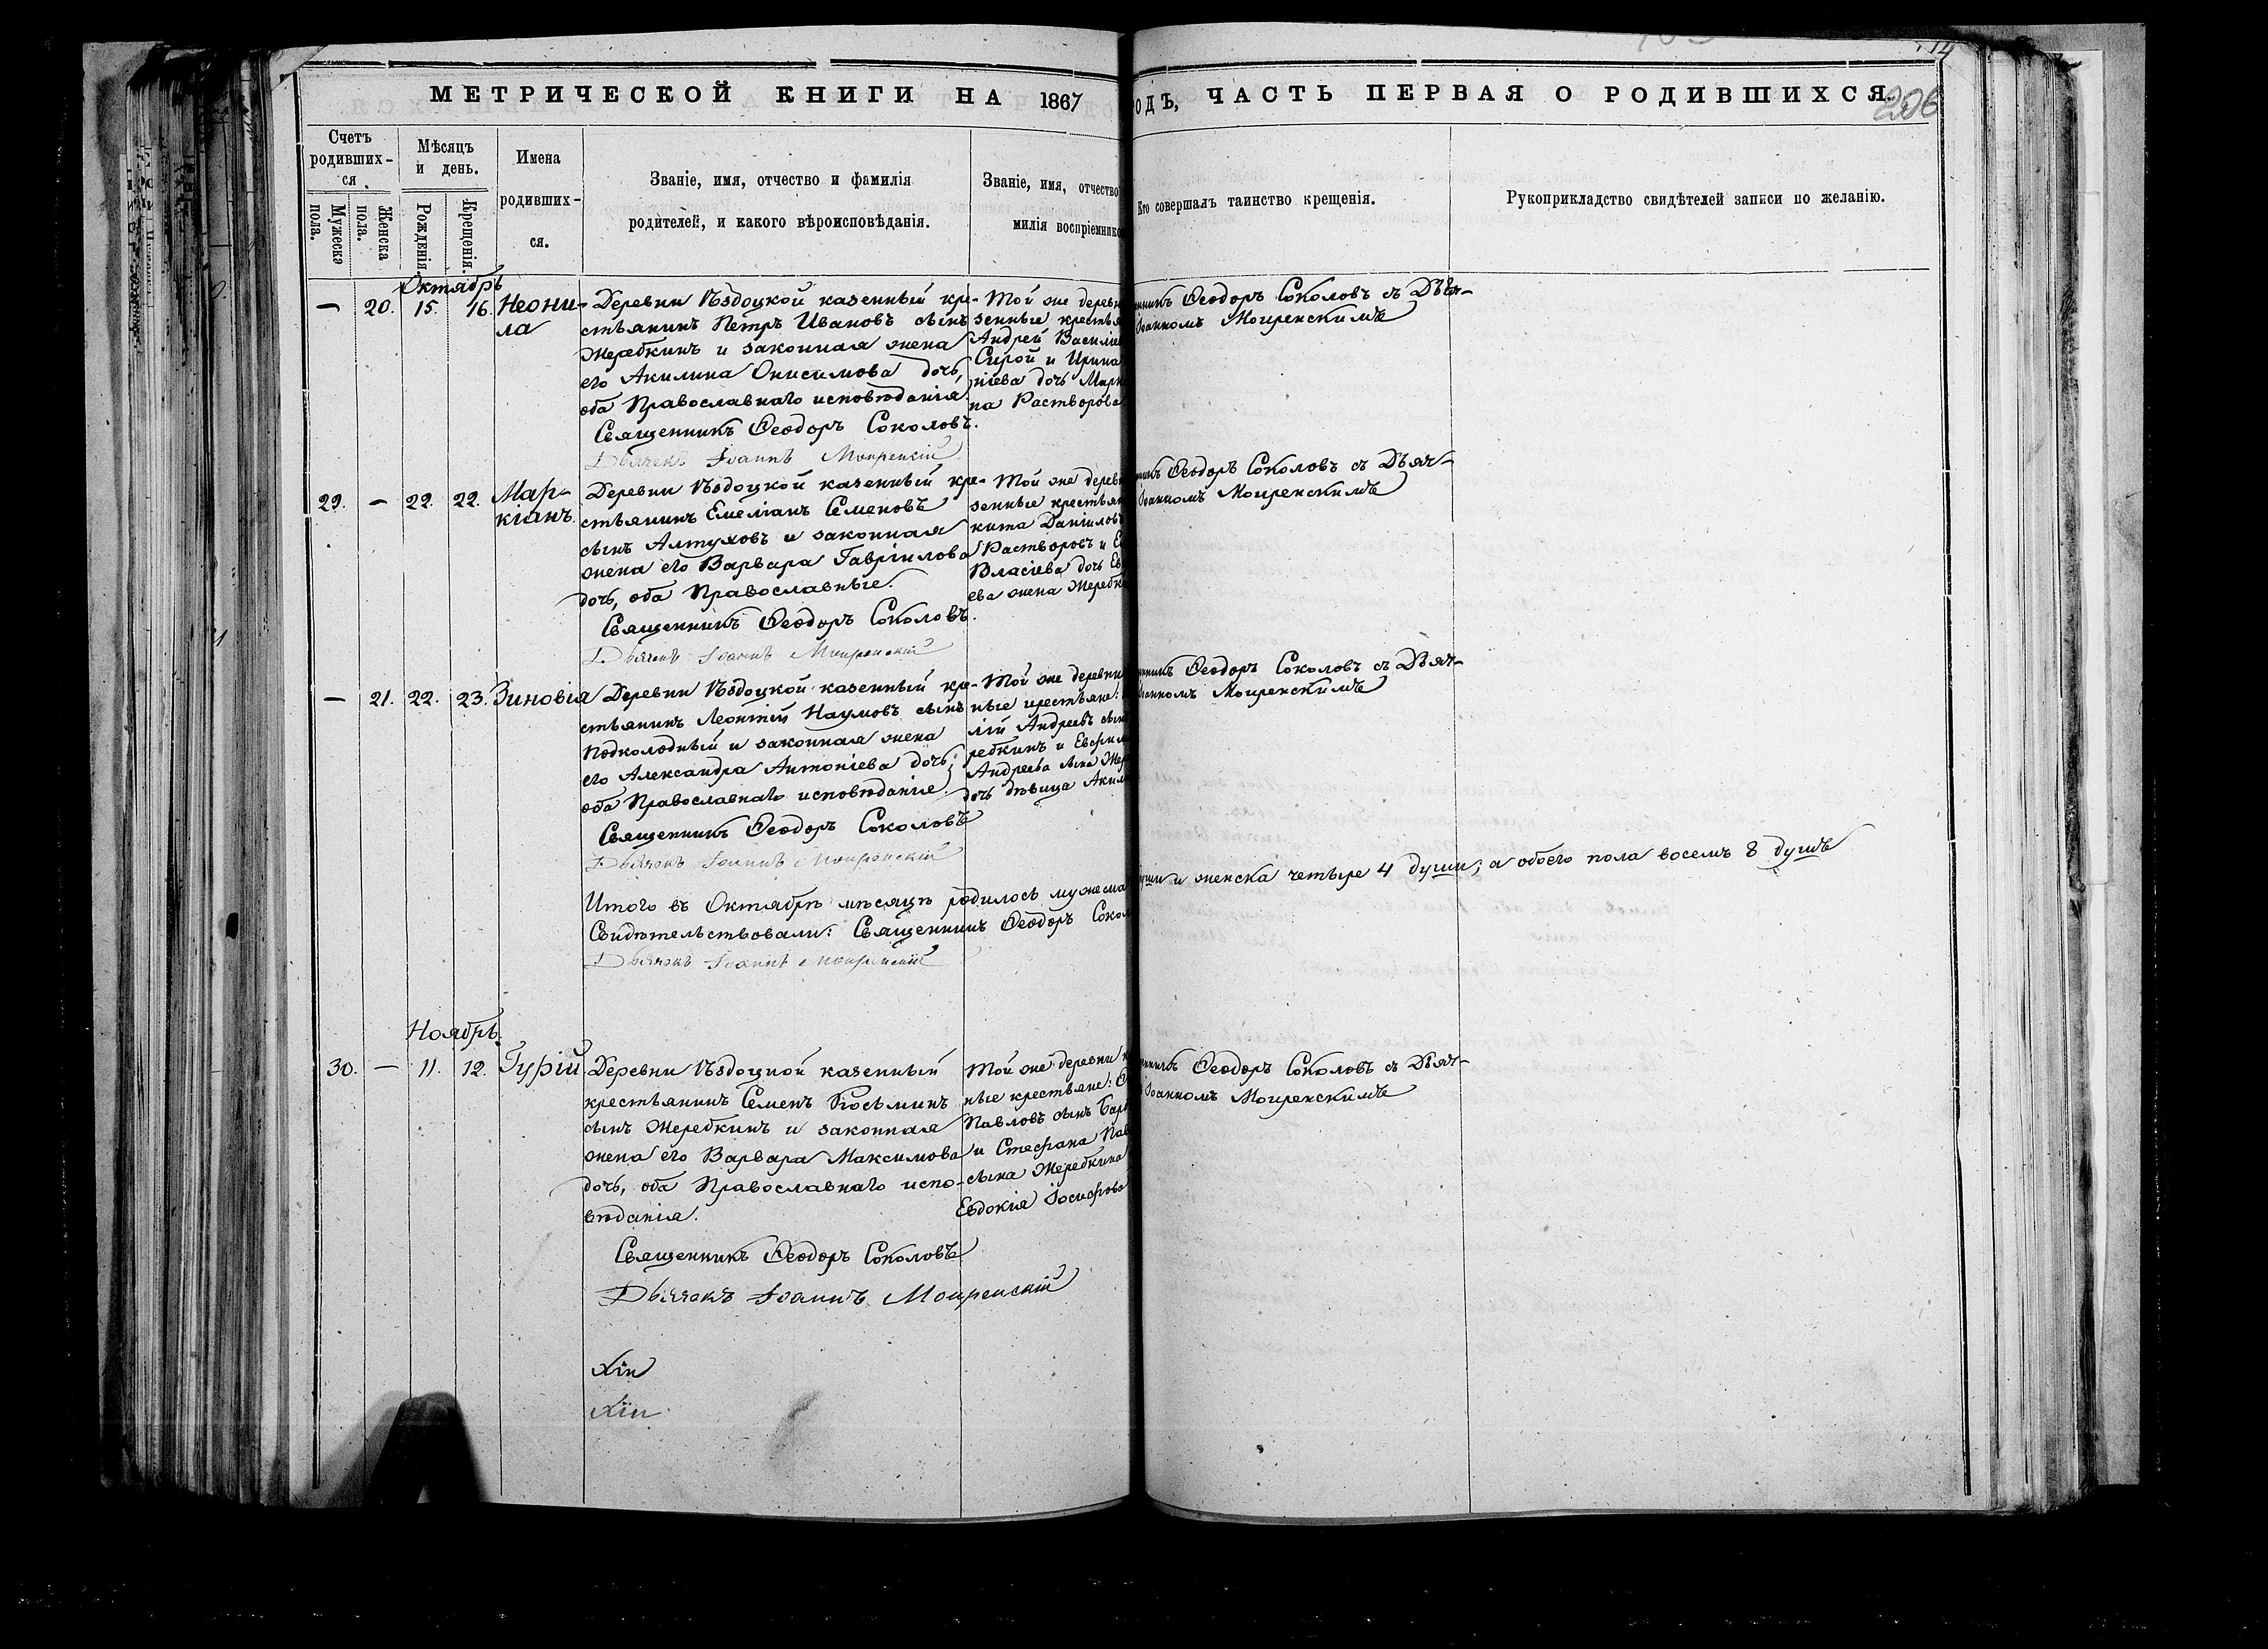 МЕТРИЧЕСКОЙ КНИГИ НА 1867
ОДЪ, ЧАСТЬ ПЕРВАЯ О РОДИВШИХСЯ.
206
Счетъ родивших-ся.
Мужеска пола.
Женска пола.
Мѣсяцъ и день.
Рожденія.
Крещенія.
Имена родивших-ся.
Званіе, имя, отчество и фамилія
родителей, и какого вѣроисповѣданія.
Званіе, имя, отчество
милія воспріемнико
Кто совершалъ таинство крещенія.
Рукоприкладство свидѣтелей записи по желанію.
Октябрь
— 20. 15. 16. Неони-
ла
Деревни Ѣздоцкой казенный кре-
стьянинъ Петръ Ивановъ сынъ
Жеребкинъ и законная жена
его Акилина Онисимова дочь,
оба Православнаго исповѣданія.
Священникъ Ѳеодоръ Соколовъ.
Дьячекъ Іоаннъ
Той же деревн
зенные крестья
Андрей Василіе
Сирой и Ирина
ніева дочь Мар
на Растворова
нникъ Ѳеодоръ Соколовъ съ Дьяч-
Іоанномъ Могиренскимъ
29. — 22. 22. Мар-
кіанъ.
Деревни Ѣздоцкой казенный кре-
стьянинъ Емеліанъ Семеновъ
сынъ Алтуховъ и законная
жена его Варвара Гавріилова
дочь, оба Православные.
Священникъ Ѳеодоръ Соколовъ.
Дьячекъ Іоаннъ
Той же деревн
зенные крестьян
кита Даніиловъ
Растворовъ и Е
Власіева дочь Ев
ева жена Жеребк
нникъ Ѳеодоръ Соколовъ съ Дьяч-
Іоанномъ Могиренскимъ
— 21. 22. 23. Зиновія
Деревни Ѣздоцкой казенный кре-
стьянинъ Леонтій Наумовъ сынъ
Подколодный и законная жена
его Александра Антоніева дочь;
оба Православнаго исповѣданія.
Священникъ Ѳеодоръ Соколовъ
Дьячокъ Іоаннъ
Той же деревни
ные крестьяне:
лій Андреевъ сын
ребкинъ и Евфим
Андреева сына Жер
дочь дѣвица Акил
нникъ Ѳеодоръ Соколовъ съ Дьяч-
Іоанномъ Могиренскимъ
Итого въ Октябрѣ мѣсяцѣ родилось мужеска
уши и женска четыре 4 души; а обоего пола восемь 8 душъ
Свидѣтельствовали: Священникъ Ѳеодоръ Сокол
Дьячокъ Іоаннъ
Ноябрь.
30. — 11. 12. Гурій
Деревни Ѣздоцкой казенный
крестьянинъ Семенъ Козьминъ
сынъ Жеребкинъ и законная
жена его Варвара Максимова
дочь, оба Православнаго испо-
вѣданія.
Священникъ Ѳеодоръ Соколовъ
Дьячокъ Іоаннъ
Той же деревни к
ные крестьяне: С
Павловъ сынъ Бар
и Стефана Пав
сына Жеребкина
Евдокія Іосифова
нникъ Ѳеодоръ Соколовъ съ Дьяч-
Іоанномъ Могиренскимъ